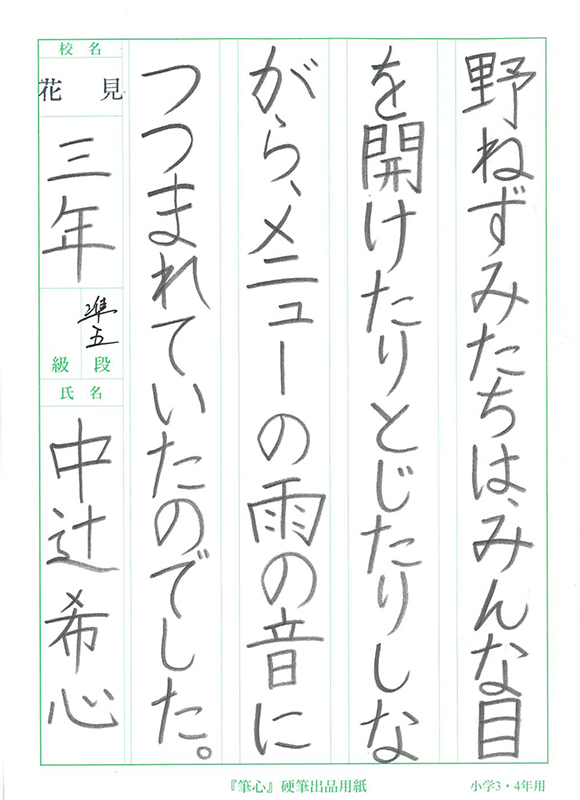 野ねずみたちは、みんな目
を開けたりとじたりしな
がら、メニューの雨の音に
つつまれていたのでした。
校名
花見
三年
準五
級段
氏名
中辻希心
『筆心』硬筆出品用紙
小学3・4年用